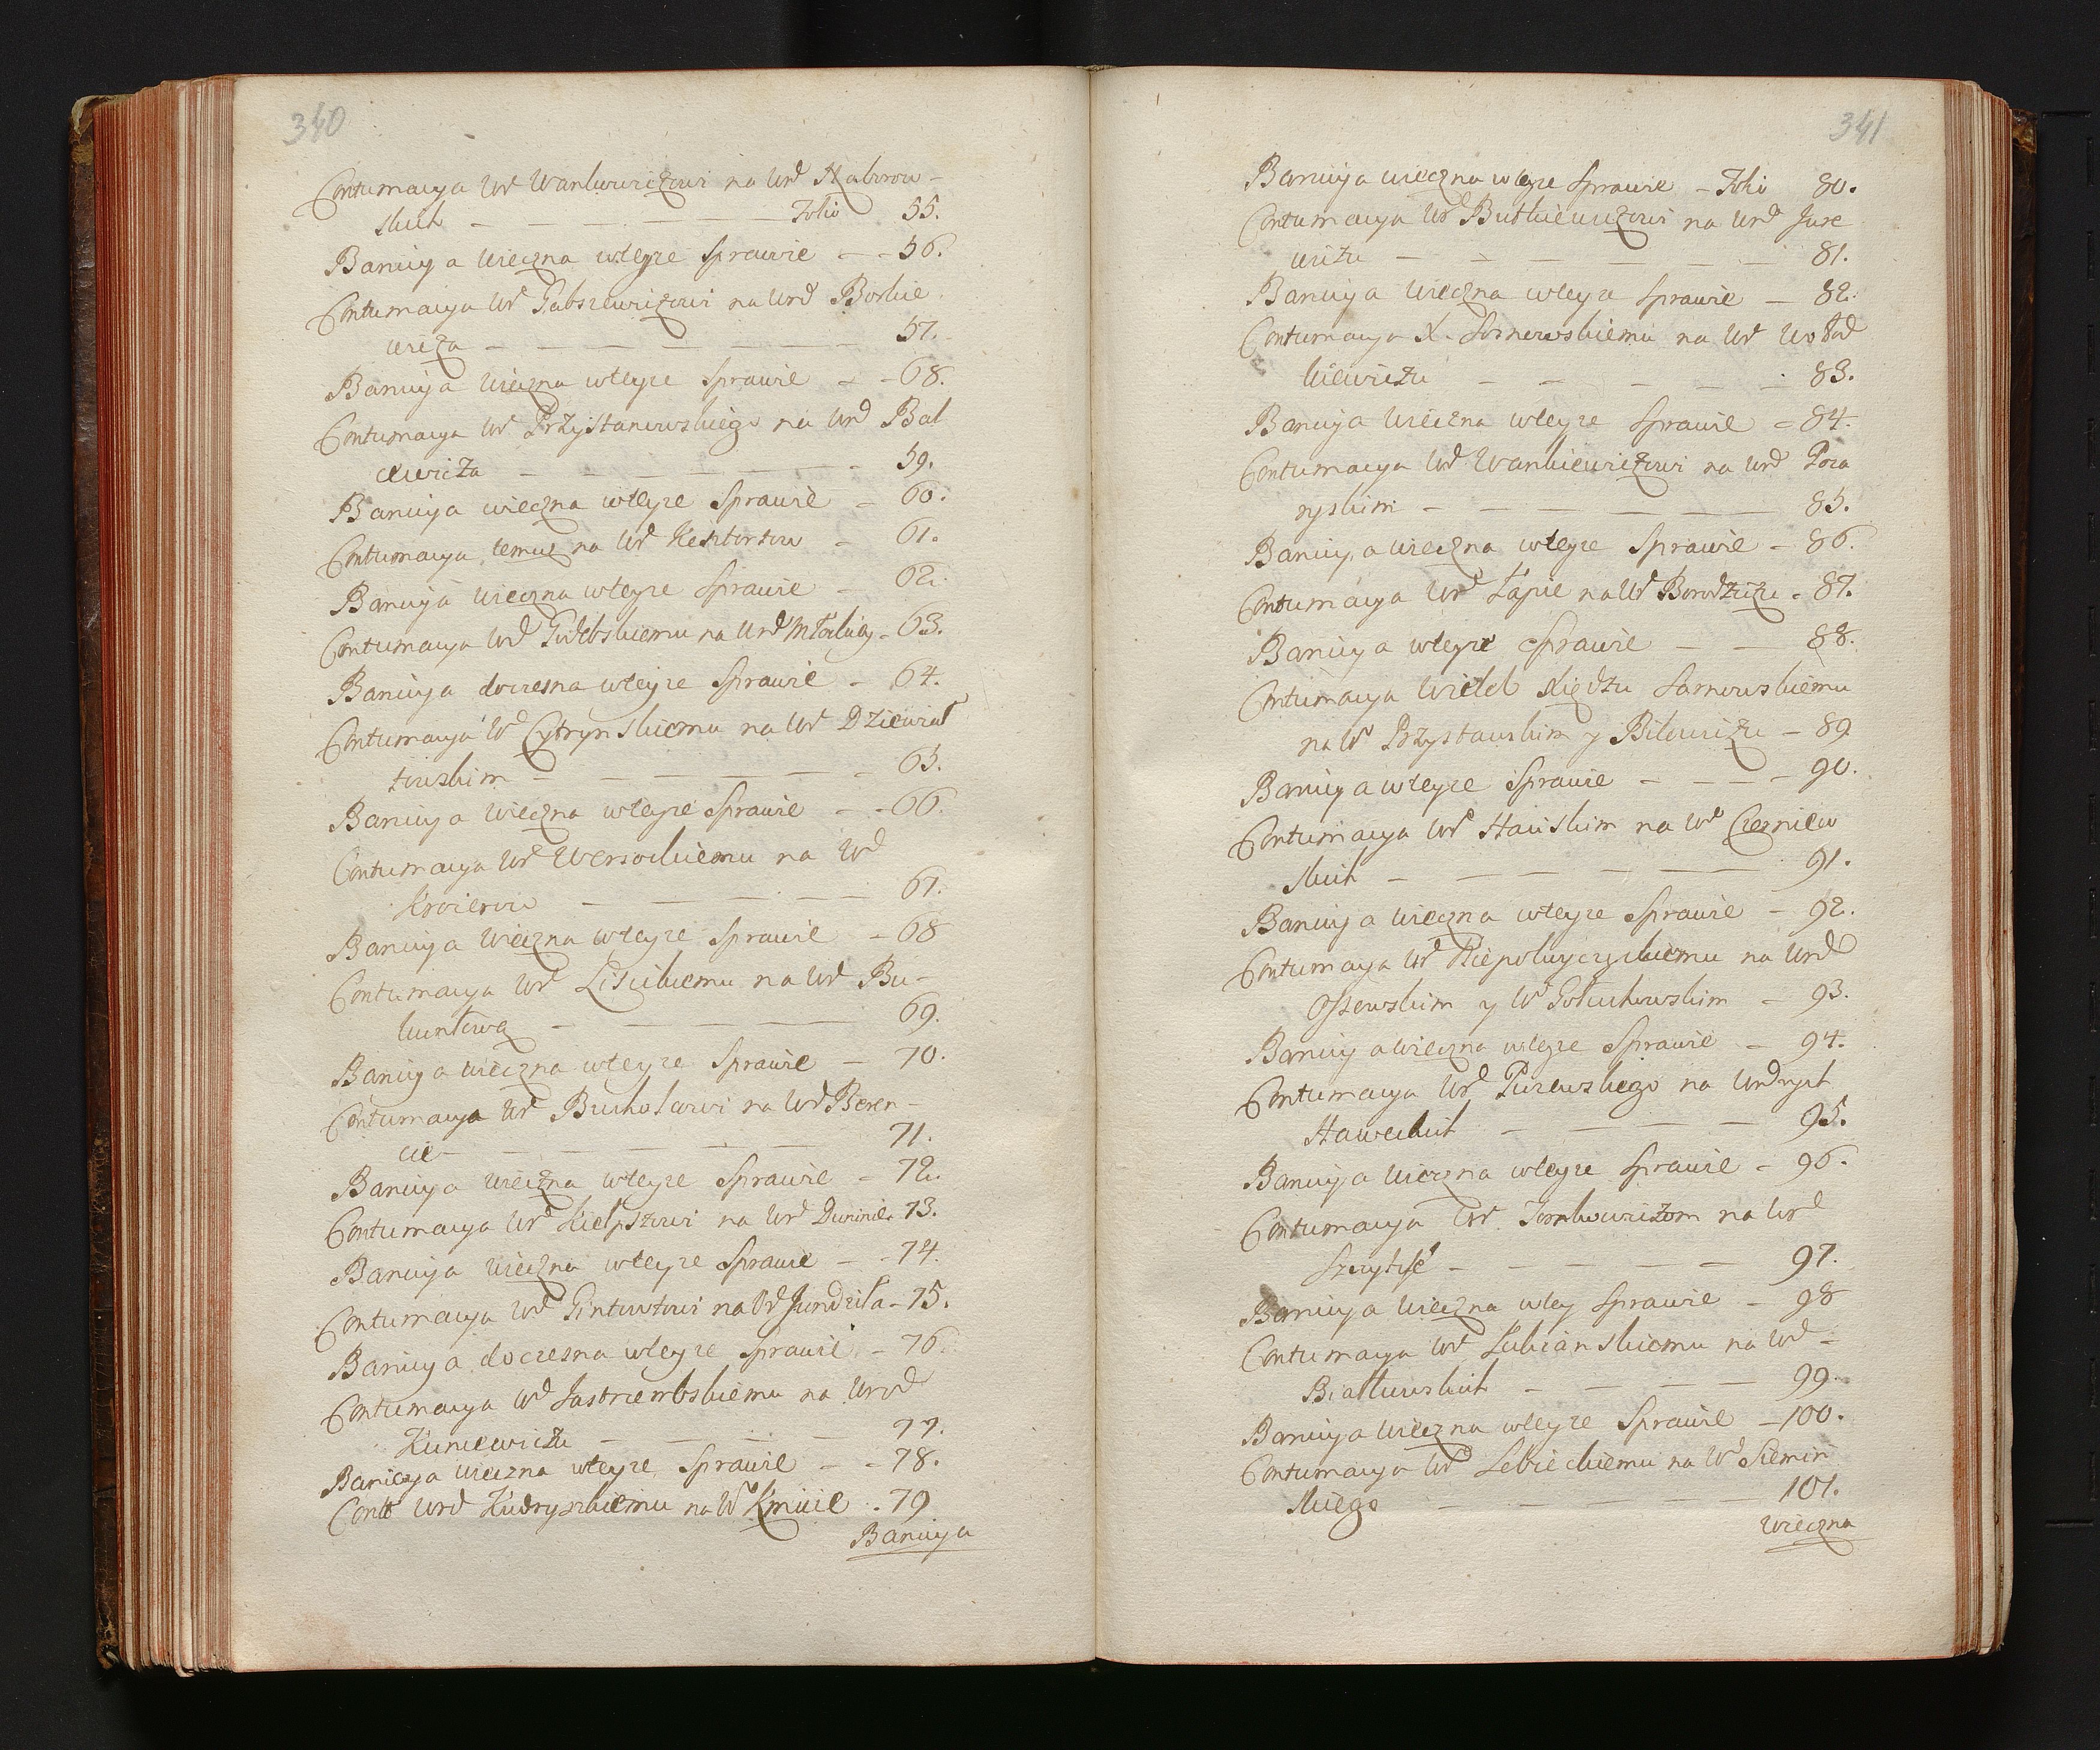 340
Contumacya Ur Wankowiczowi na Urd Nabrow-
skich — — — — Folio 55.
Banicya wieczna wteyze Sprawie — - 56.
Contumacya Ur Gabszewiczowi na Urd Borkie
wicza — — — — — 57.
Banicya wieczna wteyze Sprawie — - 68.
Contumacya Ur Przystanowskiego na Urd Bal
cewicza — — — — — 59.
Banicya wieczna wteyze Sprawie — 60.
Contumacya temuz na Ur — 61.
Banicya wieczna wteyze Sprawie — 62.
Contumacya Urd Gołebskiemu na Urd Młockich - 63.
Banicya doczesna wteyze Sprawie — 64.
Contumacya Ur Cytrynskiemu na Ur Dziewiał
towskim — — — — — 65.
Banicya wieczna wteyze Sprawie — - 66.
Contumacya Ur Wersockiemu na Ur
— — — — — 67.
Banicya wieczna wteyze Sprawie - 68
Contumacya Ur Lisickiemu na Ur Bu-
kuntową — — — — 69.
Banicya wieczna wteyze Sprawie — 70.
Contumacya Ur Bucholcowi na Urd Beren-
cie — — — — — 71.
Banicya wieczna wteyze Sprawie — 72.
Contumacya Urd Kiełpszowi na Urd Duninie. 73.
Banicya wieczna wteyze Sprawie — - 74.
Contumacya Urd Gintowtowi na Ur Jundziła - 75.
Banicya doczesna wteyze Sprawie - 76.
Contumacya Ur Jastrzembskiemu na Urod
Kuncewiczu — — — — 77.
Banicya wieczna wteyze Sprawie — - 78.
Contt Urd Kudryszkiemu na Ur Kmicie . 79
Banicya
341
Banicya wieczna wteyze Sprawie — Folio 80.
Contumacya Ur Butkiewiczowi na Urd Jure
wiczu — — — — — — 81.
Banicya wieczna wteyze Sprawie — 82.
Contumacya X. Sarnowskiemu na Ur Wołod
kiewiczu — — — — — 83.
Banicya wieczna wteyze Sprawie = 84.
Contumacya Urd Wankiewiczowi na Urd Poza
ryskim — — — — — 85.
Banicya wieczna wteyze Sprawie — 86.
Contumacya Ur Łapie na Ur Borodziczu . 87.
Banicya wteyze Sprawie — — 88.
Contumacya Wieleb Xiędzu Sarnowskiemu
na Ur Przystawskim y Bitowiczu — 89
Banicya wteyze Sprawie — — — 90.
Contumacya Urd Hauskim na Ur Czerniew
skich — — — — — 91.
Banicya wieczna wteyze Sprawie — 92.
Contumacya Ur Niepokoyczyckiemu na Urd
Ossowskim y Ur Gołuchowskim — 93.
Banicya wieczna wteyze Sprawie — 94.
Contumacya Urd Puzewskiego na Urdnych
Haweckich — — — — 95.
Banicya wieczna wteyze Sprawie — 96.
Contumacya Ur Jornkowiczom na Urd
Szczytcie — — — — — 97.
Banicya wieczna wtey Sprawie — 98
Contumacya Ur Lubianskiemu na Ur —
Białłowskich — — — — 99.
Banicya wieczna wteyze Sprawie — 100.
Contumacya Ur Lebieckiemu na Ur Siemin
skiego — — — — — 101.
wieczna